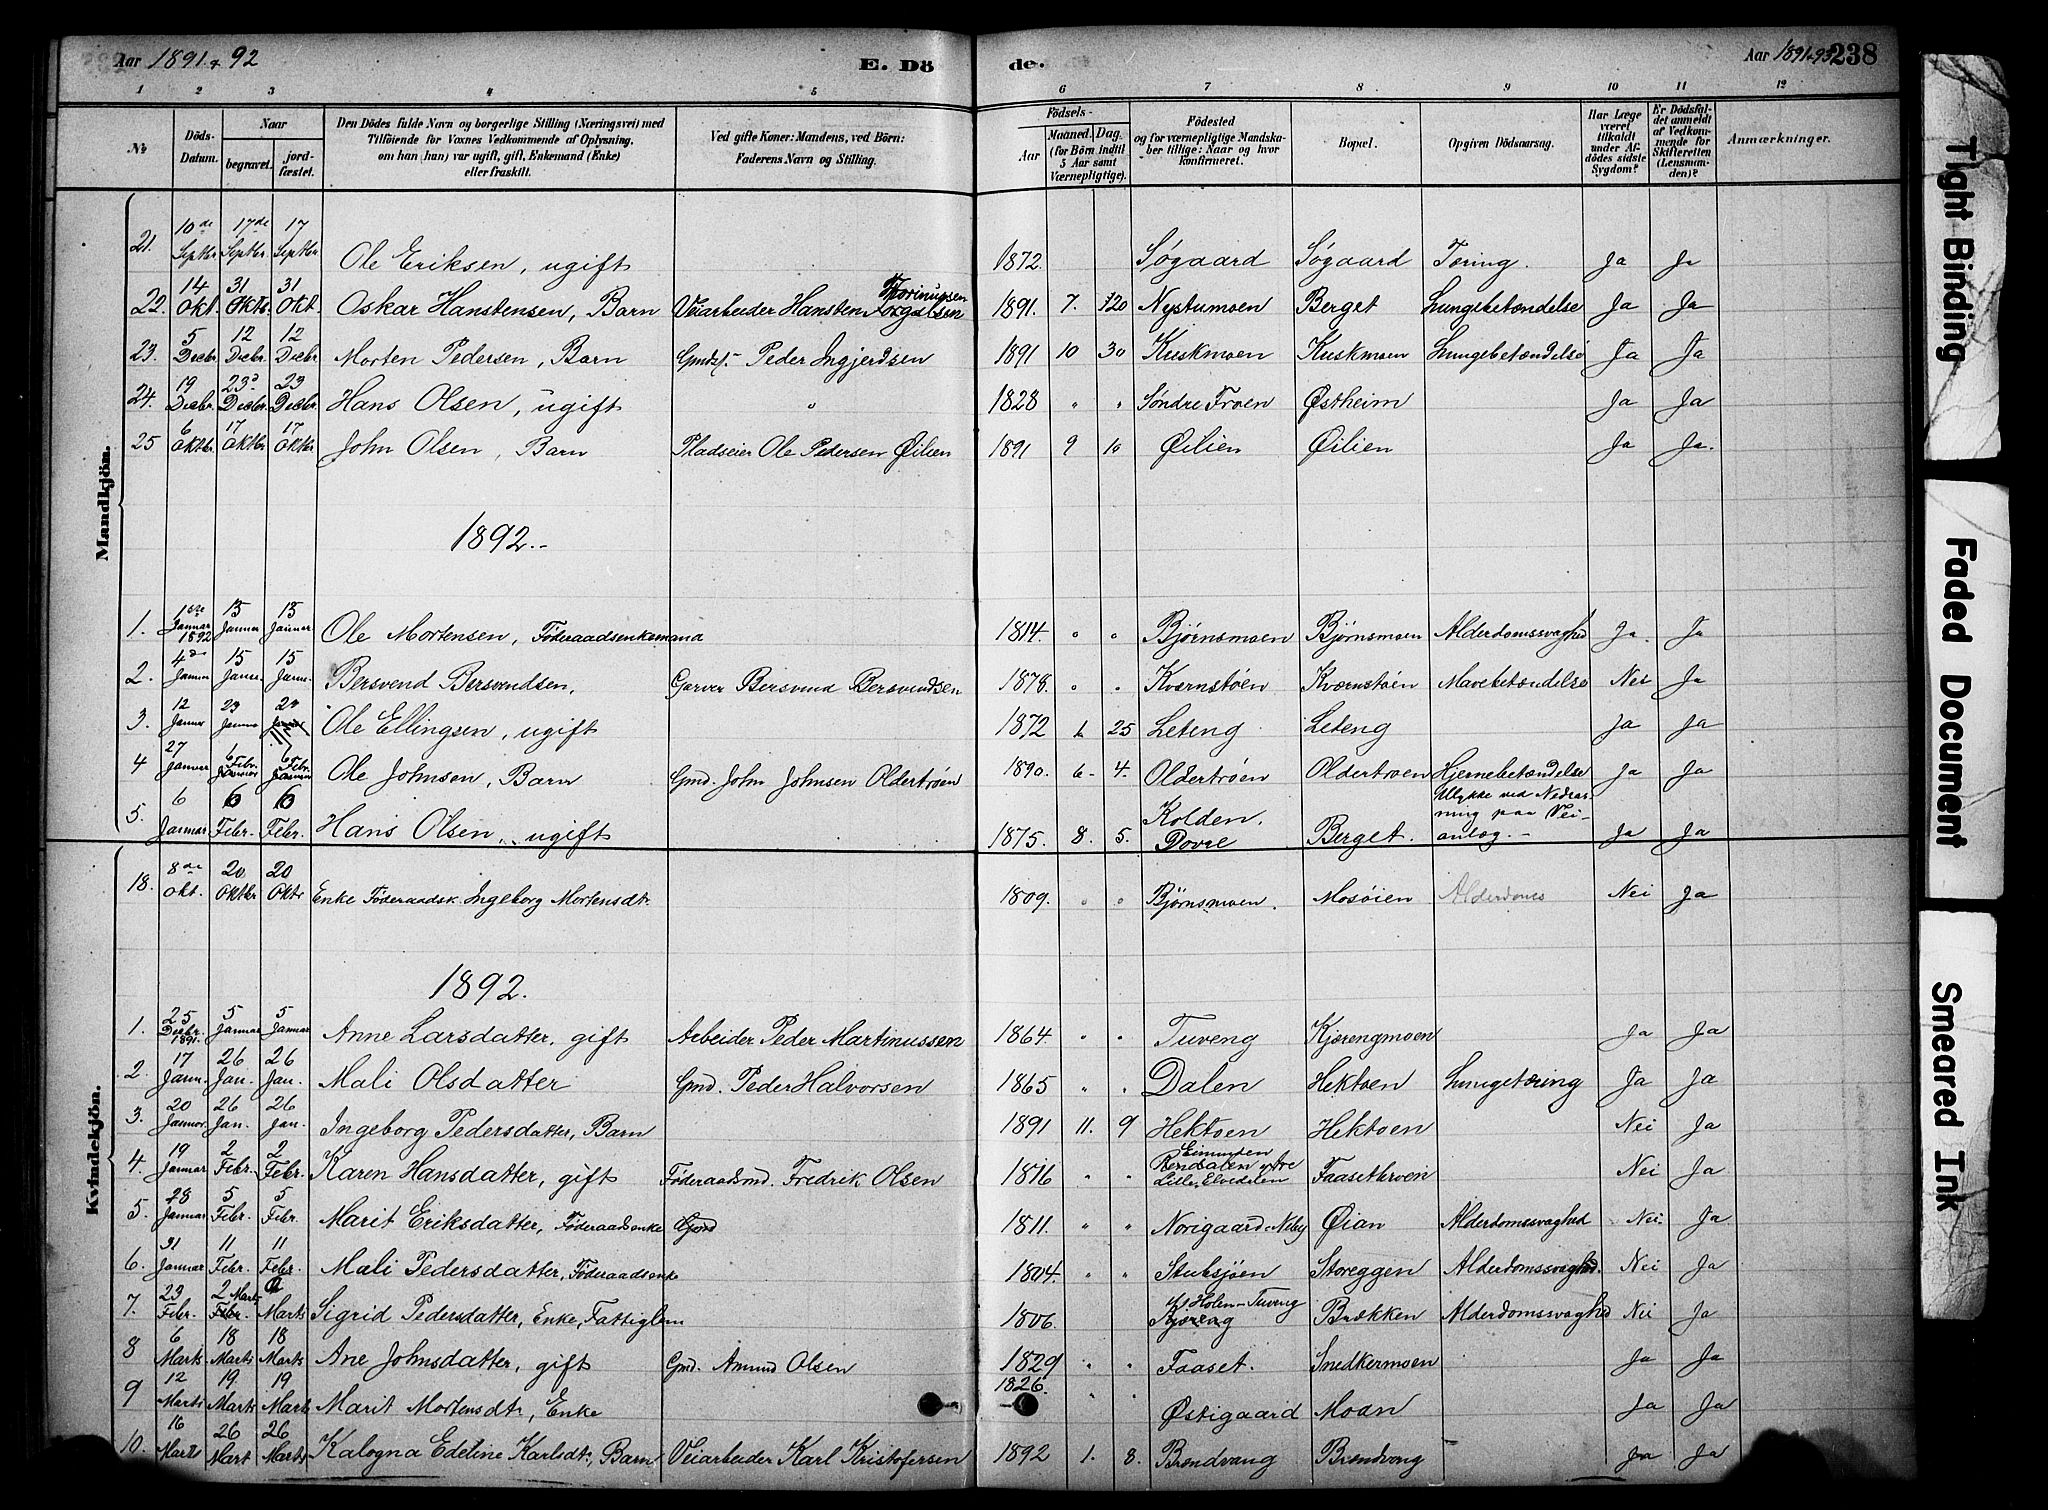 Aar 1891 & 92 E. Dö de. Aar 1891+93 238
1 2 3 4 5 6 7 8 9 10 11 12
No Döds-Datum. Naar begravet. jordfæstet. Den Dödes fulde Navn og borgerlige Stilling (Næringsvei) med Tilföiende for Voxnes Vedkommende af Oplysning, om han (hun) var ugift, gift, Enkemand (Enke) eller fraskilt. Ved gifte Koner: Mandens, ved Börn: Faderens Navn og Stilling. Födsels- Aar Maaned. Dag. (for Börn indtil 5 Aar samt Værnepligtige). Födested og for værnepligtige Mandskaber tillige: Naar og hvor konfirmeret. Bopæl. Opgiven Dödsaarsag. Har Læge været tilkaldt under Afdödes sidste Sygdom? Er Dödsfaldet anmeldt af Vedkommende for Skifteretten (Lensmanden)? Anmærkninger.
Mandkjön.
21. 10de Septbr 17de Septbr. 17 Septbr Ole Eriksen, ugift 1872. Søgaard Søgaard Tæring. Ja Ja
22. 14 Okt. 31 Oktb. 31 Okt. Oskar Hanstensen, Barn Veiarbeider Hansten 1891. 7. 20 Nystumoen Berget Lungebetændelse Ja Ja
23. 5 Decbr. 12 Decbr. 12 Decbr Morten Pedersen, Barn Gmdsf. Peder Ingjerdsen 1891 10 30 Kuskmoen Kuskmoen Lungebetændelse Ja Ja
24. 19 Decbr. 23d Decbr. 23 Decbr. Hans Olsen, ugift " 1828 " " Søndre Troen Østheim Ja Ja
25 6 Oktbr. 17 Oktbr 17 Oktbr John Olsen, Barn Pladseier Ole Pedersen Øilien 1891 9 10 Øilien Øilien Ja Ja.
1892.-
1. 1ste Januar 1892 13 Januar 13 Januar Ole Mortensen, Føderaadsenkemand 1814. " " Bjørnsmoen Bjørnsmoen Alderdomssvaghed Ja. Ja
2. 4de Januar 15 Janu. 15 Janu. Bersvend Bersvendsen, Garver Bersvend Bersvendsen 1878. " " Kvernstøen Kvernstøen Mavebetændelse Nei Ja
3. 12 Januar 23 Januar 23 Januar Ole Ellingsen, ugift 1872 25 Leteng Leteng Ja Ja
4 27 Januar 6 Febr. Januar 6 Febr. Januar Ole Johnsen, Barn Gmd. John Johnsen Oldertroen 1890. 6- 4. Oldertrøen Oldertroen Hjernebetændelse Ja Ja
5. 6 Januar 6 Febr. 6 Febr. Hans Olsen, ugift 1875. 8. 5. Kolden. Dovre Berget. Ulykke ved Nedrasning paa Veianlæg.- Ja Ja
Kvindekjön.
18. 8de Okt. 20 Oktbr 20 Oktr Enke Føderaadsk. Ingeborg Mortensdt. 1809. " " Bjørnsmoen. Mosøien Alderdoms Nei Ja
1892.
1. 25 Decbr. 1891. 5 Januar 5 Januar Anne Larsdatter, gift Arbeider Peder Martinussen 1864 " " Tuveng Kjærengmoen Ja Ja
2. 17 Janu. 26 Jan. 26 Jan. Mali Olsdatter Gmd. Peder Halvorsen 1865 " " Dalen Hektoen Lungetæring Ja Ja
3. 20 Januar 26 Jan. 26 Jan. Ingeborg Pedersdatter, Barn 1891 11. 9 Hektoen Hektoen Nei Ja
4. 19 Januar 2 Febr. 2 Febr. Karen Hansdatter, gift Føderaadsmd. Fredrik Olsen 1816 " " Rendalen ytre Lille Elvedalen Faasettroen Nei Ja
5. 28 Januar 5 Febr. 5 Febr. Marit Eriksdatter, Føderaadsenke Gjord 1811. " " Norigaard Neby Øian Alderdomssvaghed Nei Ja
6. 31 Januar 11 Febr. 11 Febr. Mali Pedersdatter, Føderaadsenke 1804. " " Stubsjøen Storeggen Alderdomssvaghed. Nei Ja
7. 23 Febr. 2 Marts Febr. Marts Sigrid Pedersdatter, Enke, Fattiglem 1806. Holen-Tuveng Kjæreng Brækken Alderdomssvaghed Nei Ja
8 6 Marts 18 Marts 18 Marts Ane Johnsdatter, gift Gmd. Amund Olsen 1829 " " Faaset. Snedkermoen Ja Ja
9 12 Marts 19. Marts 19 Marts Marit Mortensdt., Enke 1826. " " Østigaard Moan Ja Ja
10. 16 Marts 26 Mart 26 Marts Kalogna Edeline Karlsdt., Barn Veiarbeider Karl Kristofersen 1892 1. 8. Brendvang Brendvang Ja Ja
Tight Binding
Faded Document
Smeared Ink